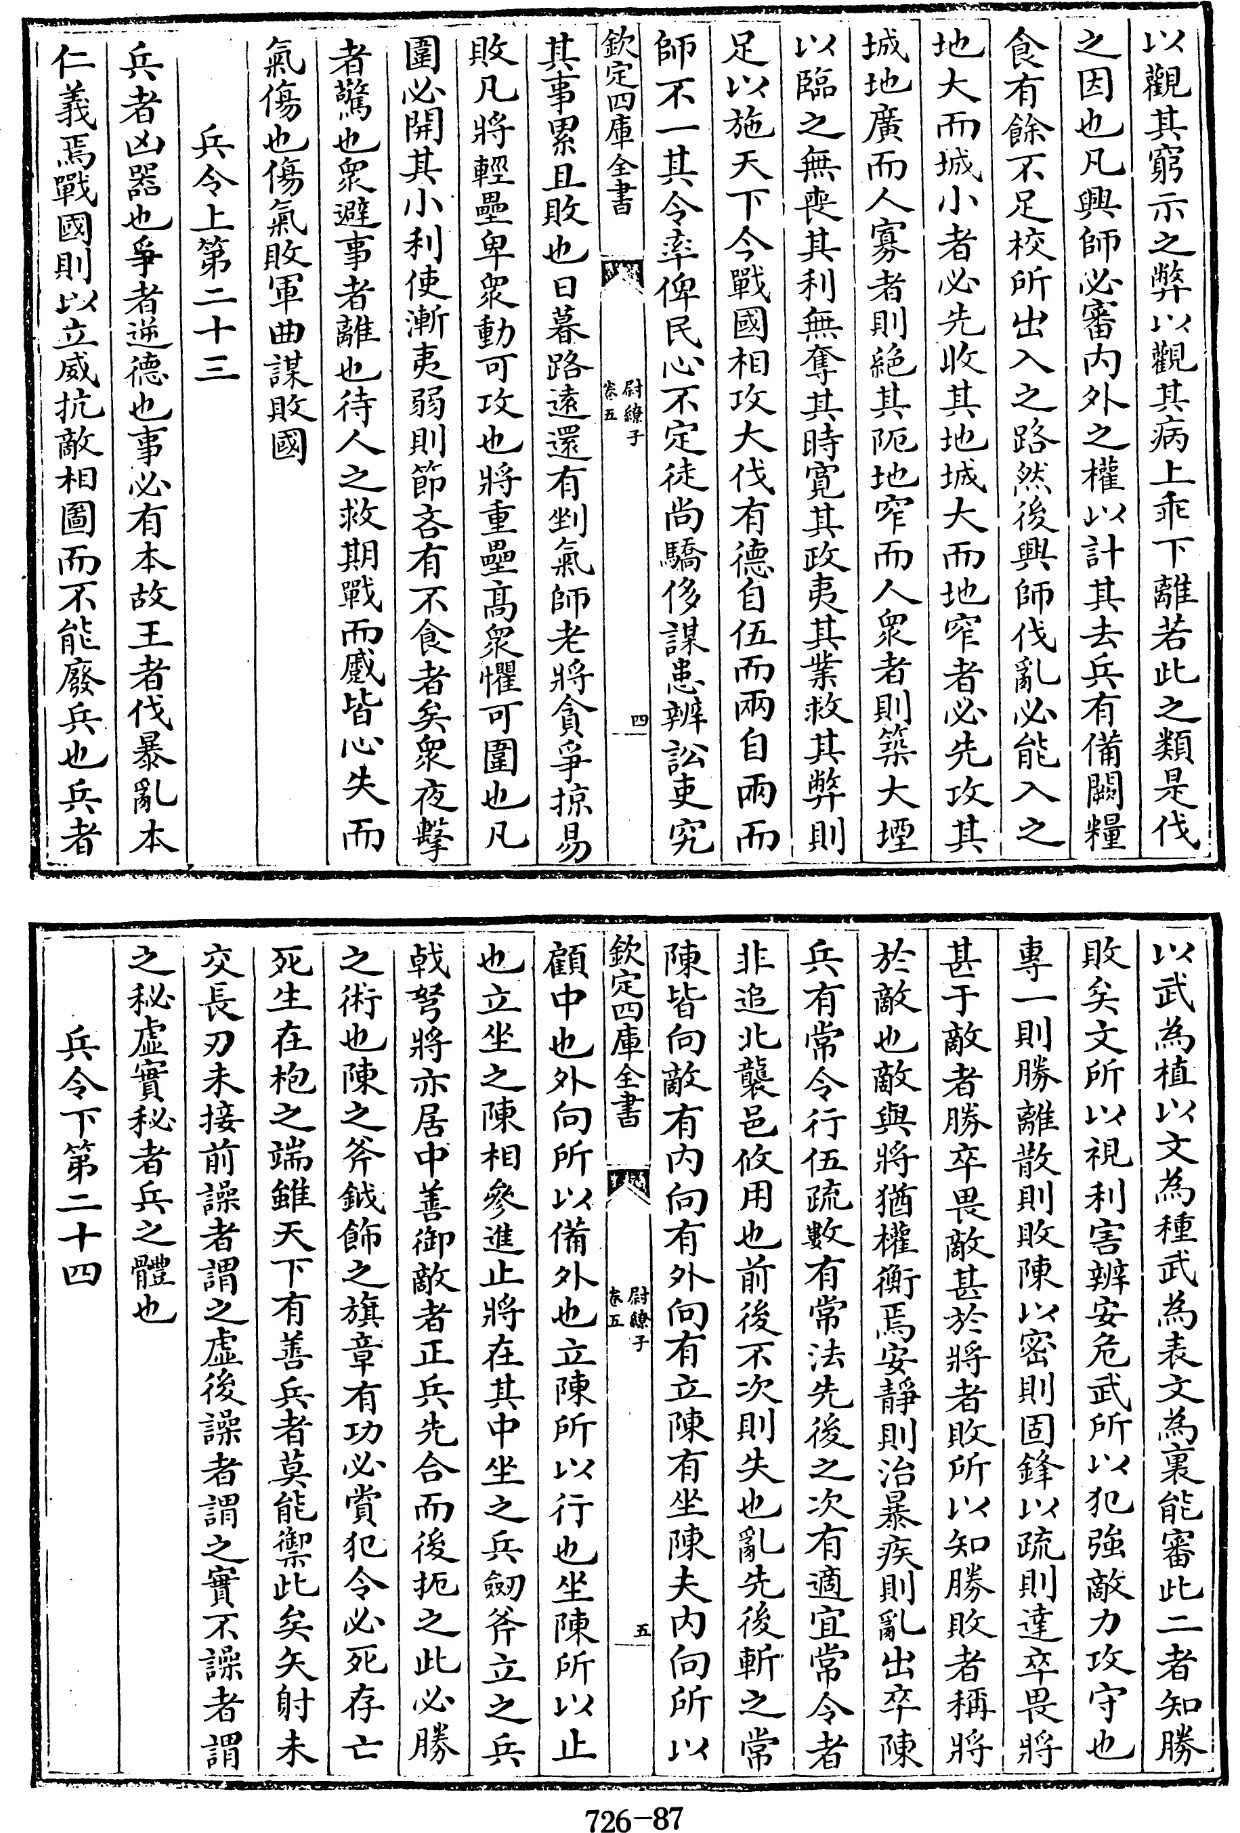 以觀其窮示之弊以觀其病上乖下離若此之類是伐
之因也凡興師必審内外之權以計其去兵有備闕糧
食有餘不足校所出入之路然後興師伐亂必能入之
地大而城小者必先收其地城大而地窄者必先攻其
城地廣而人寡者則絶其阨地窄而人衆者則築大堙
以臨之無喪其利無奪其時寛其政夷其業救其弊則
足以施天下今戰國相攻大伐有德自伍而兩自兩而
師不一其令率俾民心不定徒尚驕侈謀患辨訟吏究
欽定四庫全書
尉繚子
卷五
四
其事累且敗也日暮路遠還有剉氣師老將貪爭掠易
敗凡將輕壘卑衆動可攻也將重壘髙衆懼可圍也凡
圍必開其小利使漸夷弱則節吝有不食者矣衆夜擊
者驚也衆避事者離也待人之救期戰而蹙皆心失而
氣傷也傷氣敗軍曲謀敗國
兵令上第二十三
兵者凶器也爭者逆德也事必有本故王者伐暴亂本
仁義焉戰國則以立威抗敵相圖而不能廢兵也兵者
以武為植以文為種武為表文為裏能審此二者知勝
敗矣文所以視利害辨安危武所以犯強敵力攻守也
專一則勝離散則敗陳以密則固鋒以疏則達卒畏將
甚于敵者勝卒畏敵甚於將者敗所以知勝敗者稱將
於敵也敵與將猶權衡焉安靜則治暴疾則亂出卒陳
兵有常令行伍疏數有常法先後之次有適宜常令者
非追北襲邑攸用也前後不次則失也亂先後斬之常
陳皆向敵有内向有外向有立陳有坐陳夫内向所以
欽定四庫全書
尉繚子
卷五
五
顧中也外向所以備外也立陳所以行也坐陳所以止
也立坐之陳相參進止將在其中坐之兵劒斧立之兵
戟弩將亦居中善御敵者正兵先合而後扼之此必勝
之術也陳之斧鉞飾之旗章有功必賞犯令必死存亡
死生在枹之端雖天下有善兵者莫能禦此矣矢射未
交長刃未接前譟者謂之虛後譟者謂之實不譟者謂
之秘虛實秘者兵之體也
兵令下第二十四
726-87